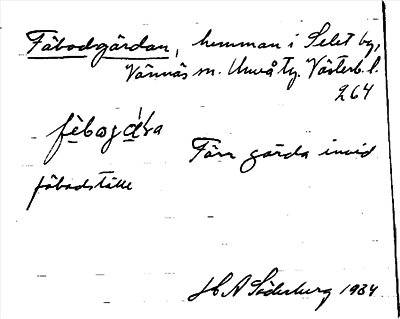 Fäbodgärdan, hemman i Selet by,
Vännäs sn. Umeå tg. Västerb. l.
264
fèbogǽ'ra
Förr gärda invid
fäbodställe
H A Söderberg 1934